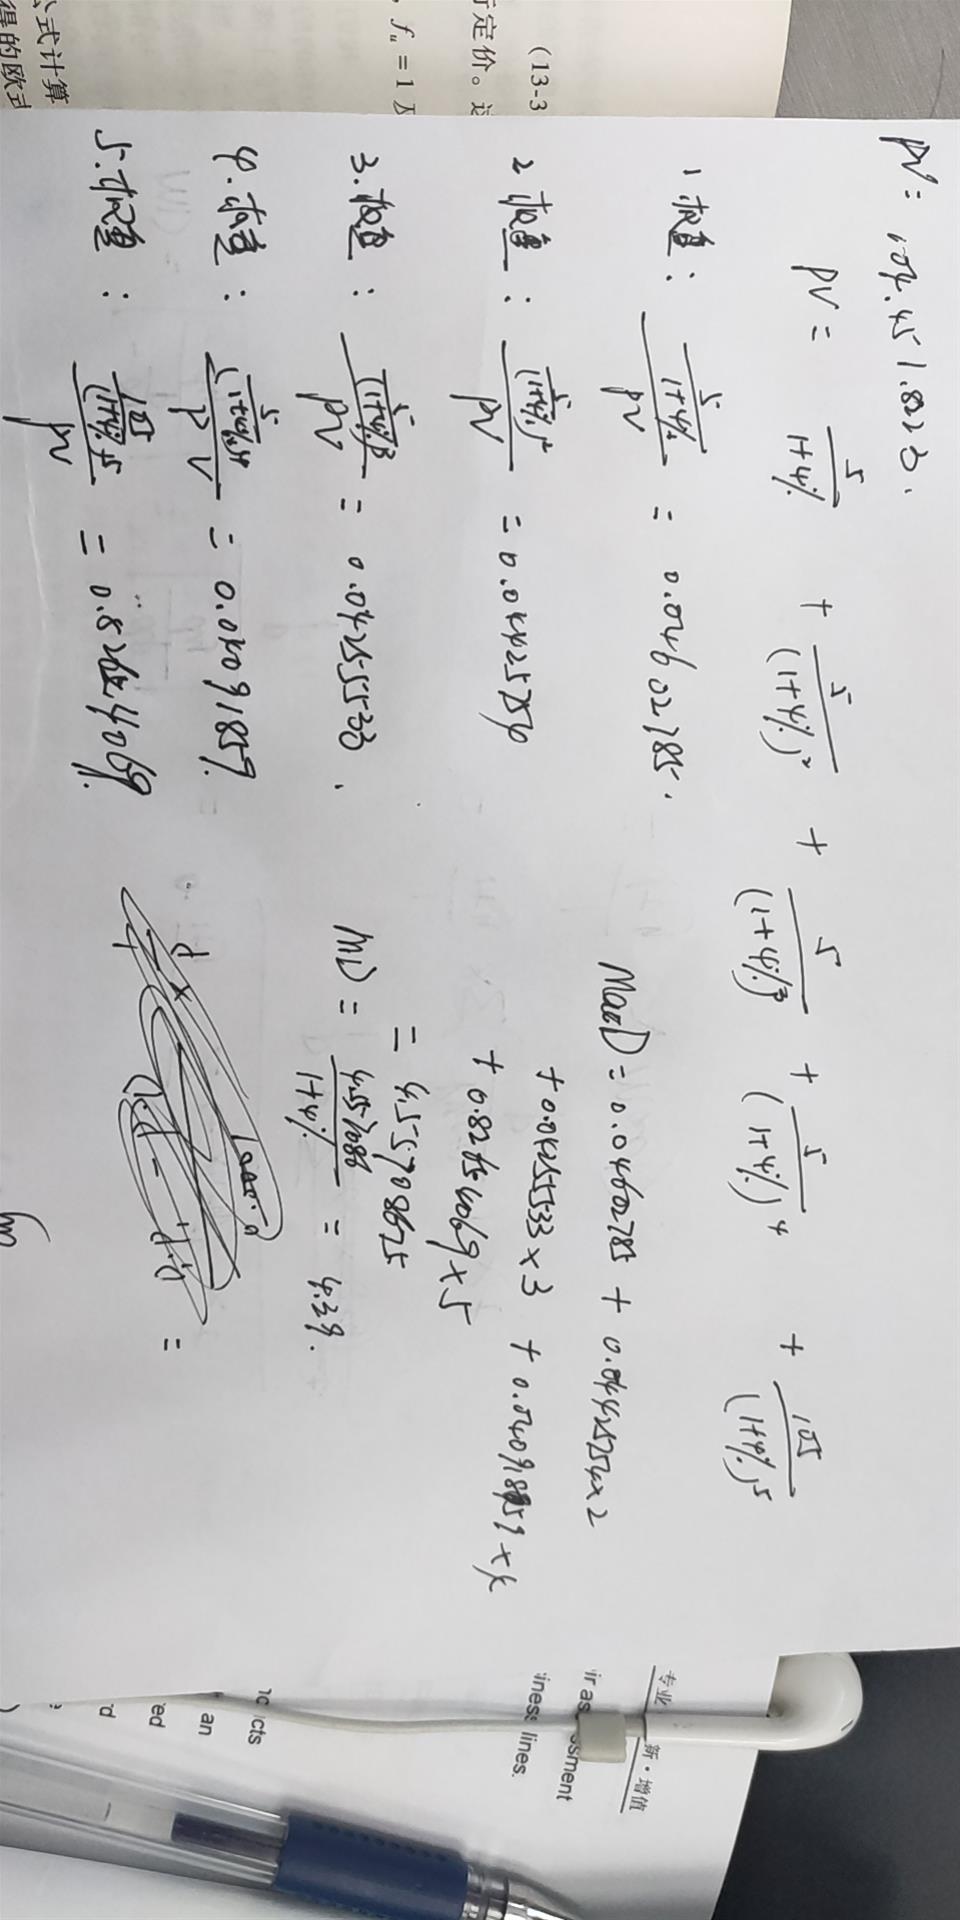 PV = 104.451.8223.
PV = 5/(1+4%) + 5/(1+4%)² + 5/(1+4%)³ + 5/(1+4%)⁴ + 105/(1+4%)⁵
1 权重: (5/(1+4%))/PV = 0.04602785.
2 权重: (5/(1+4%)²)/PV = 0.04425754
3. 权重: (5/(1+4%)³)/PV = 0.04255533.
4. 权重: (5/(1+4%)⁴)/PV = 0.04091859.
5. 权重: (105/(1+4%)⁵)/PV = 0.82624069.
MacD = 0.04602785 + 0.04425754×2
+ 0.04255533×3 + 0.04091859×4
+ 0.82624069×5
= 4.55708675
MD = 4.557086/(1+4%) = 4.39.
=
(13-3
行定价。这
, fᵤ = 1 及
公式计算
得的欧式
专业 新·增值
ir as sment
iness lines.
icts
an
ed
d